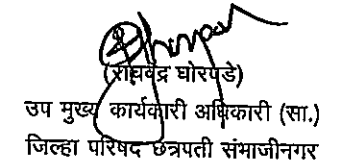 (राघवेंद्र घोरपडे)
उप मुख्य कार्यकारी अधिकारी (सा.)
जिल्हा परिषद छत्रपती संभाजीनगर